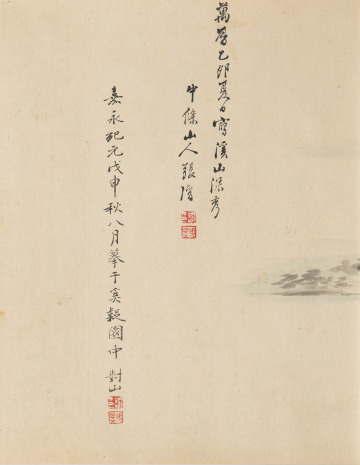 萬曆乙卯夏日寫溪山深秀
中條山人張復
嘉永紀元戊申秋八月摹于奚疑園中 對山